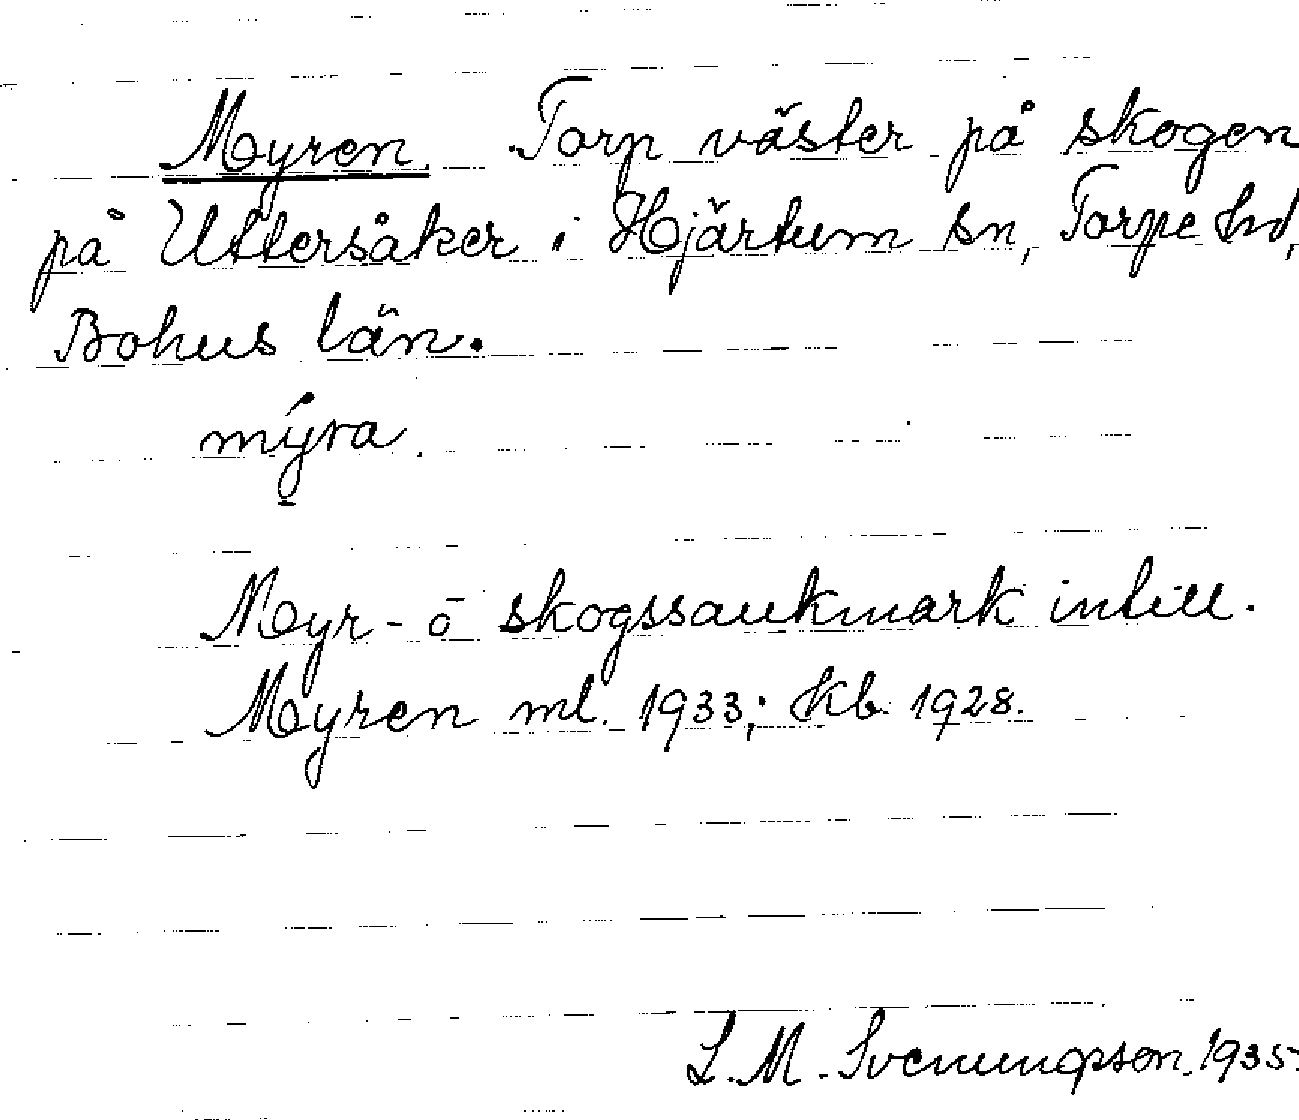 Myren. Torp väster på skogen
på Uttersåker i Hjärtum sn, Torpe hd,
Bohus län.
mýra.
Myr- o skogssankmark intill.
Myren ml. 1933; Kb. 1928.
L. M. Svenungsson. 1935.